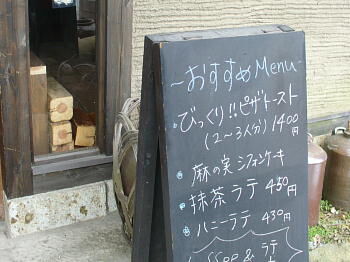 ～おすすめMenu～
・びっくり!!ピザトースト
(2～3人分) 1400円
麻の実 シフォンケーキ
抹茶ラテ 450円
ハニーラテ 430円
& ラテ